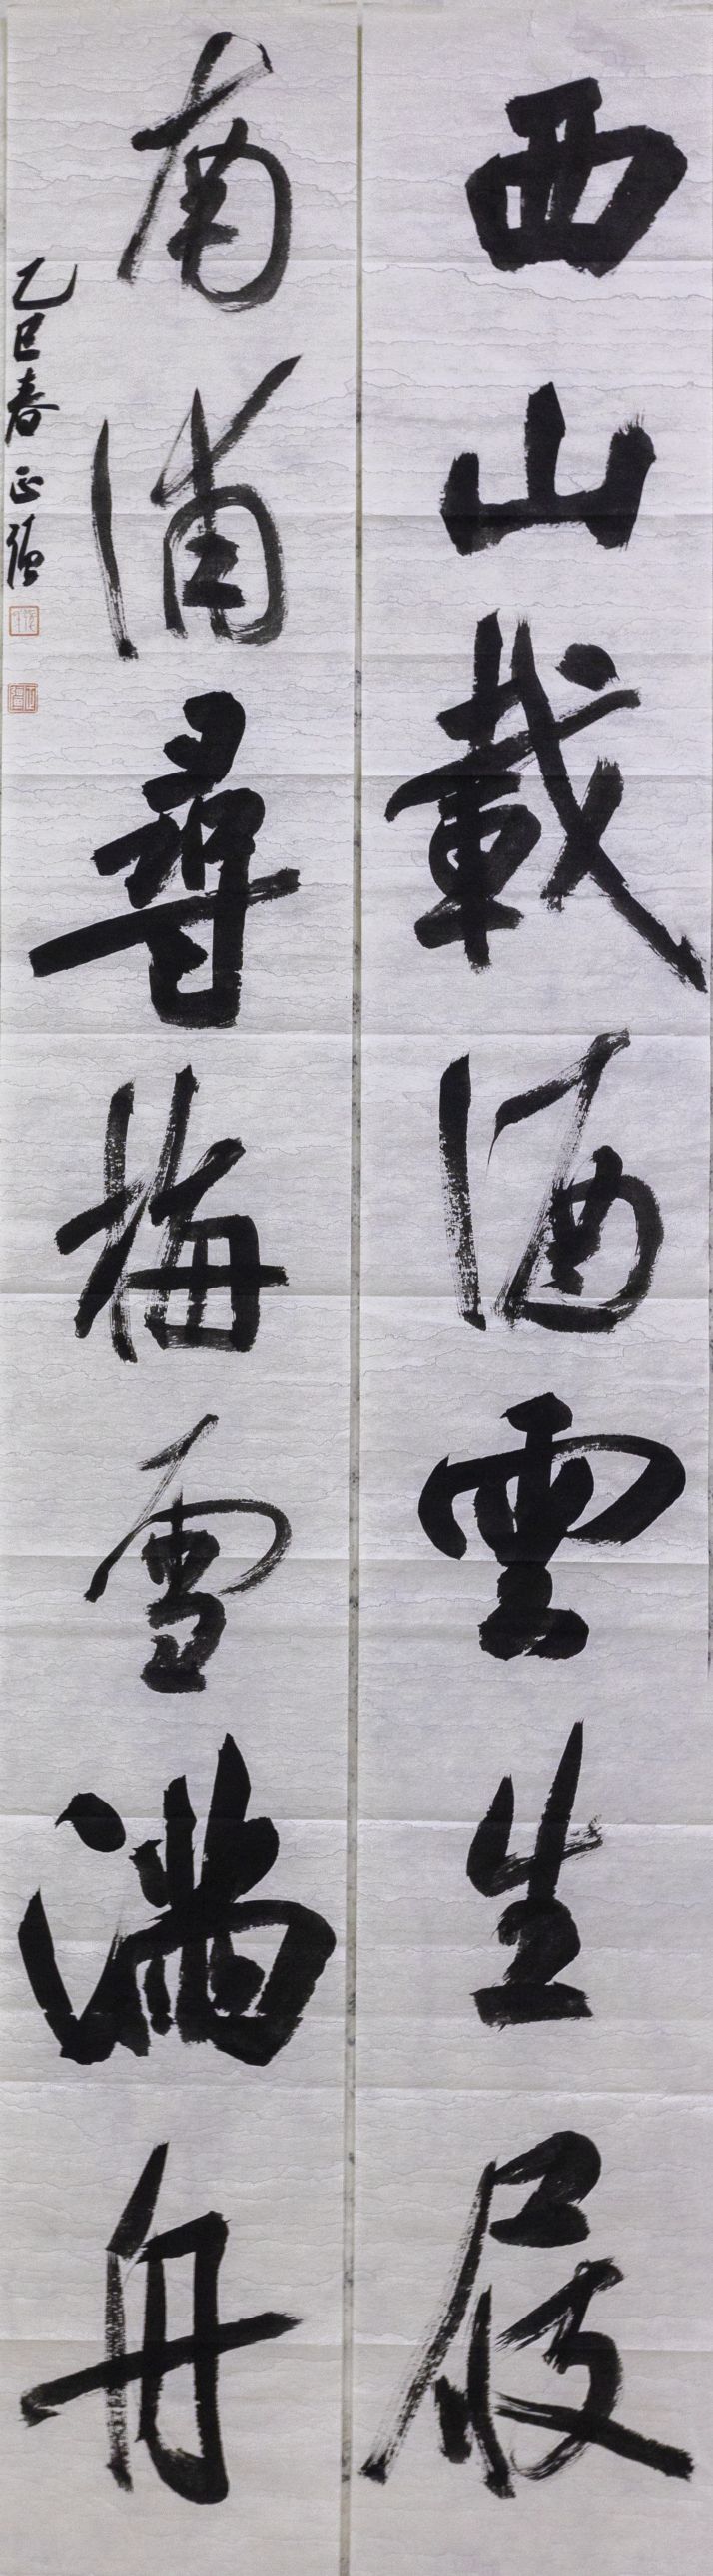 西山載酒雲生屐
南浦尋梅雪滿舟
乙巳春 正德